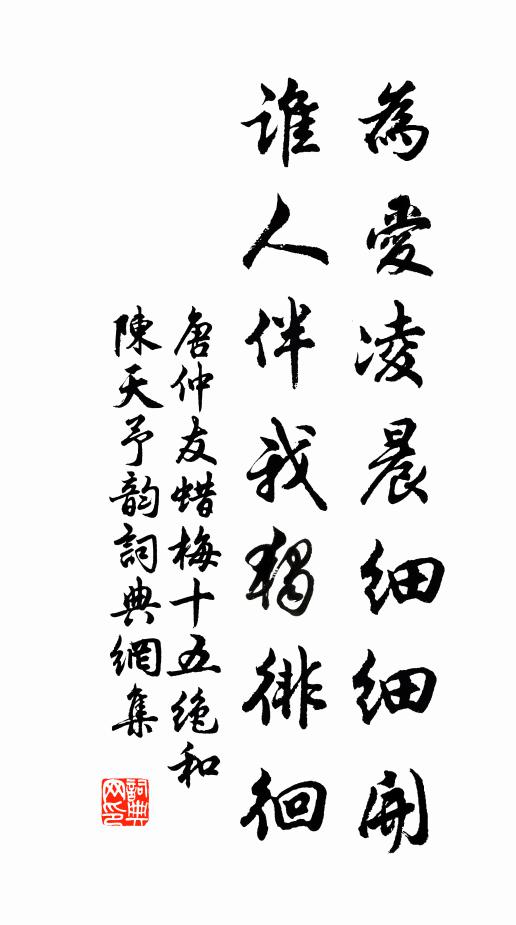 為愛凌晨細細開
誰人伴我獨徘徊
唐仲友蜡梅十五绝和
陳天予韵詞典網集
詞典网印